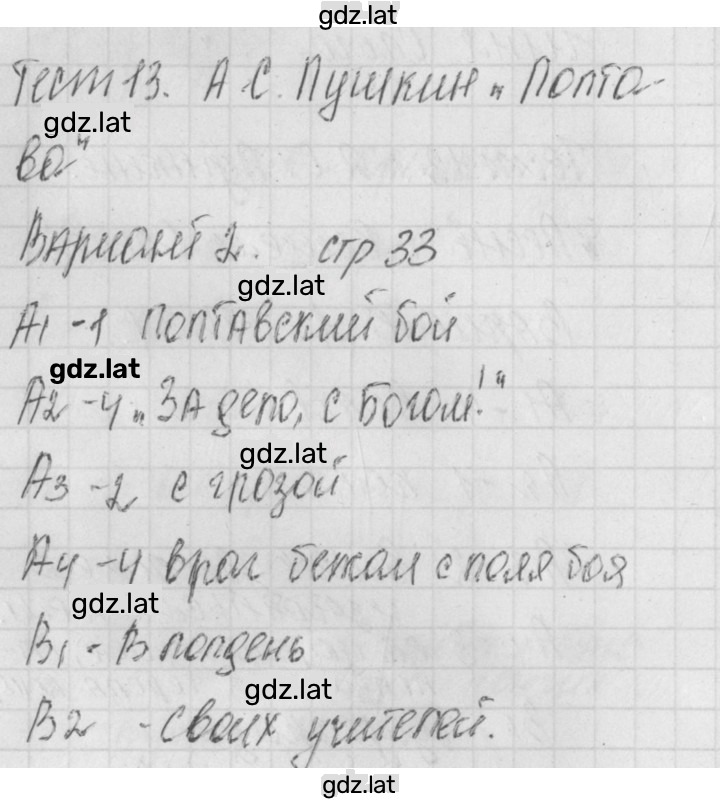 gdz.lat
Тест 13. А С. Пушкин „Полта-
gdz.lat
ва"
Вариант 2. стр 33
gdz.lat
А1 - 1 Полтавский бой
gdz.lat
А2 - 4 „За дело, с Богом!"
gdz.lat
А3 - 2 с грозой
А4 - 4 враг бежал с поля боя
gdz.lat
В1 - В полдень
gdz.lat
В2 - своих учителей.
gdz.lat